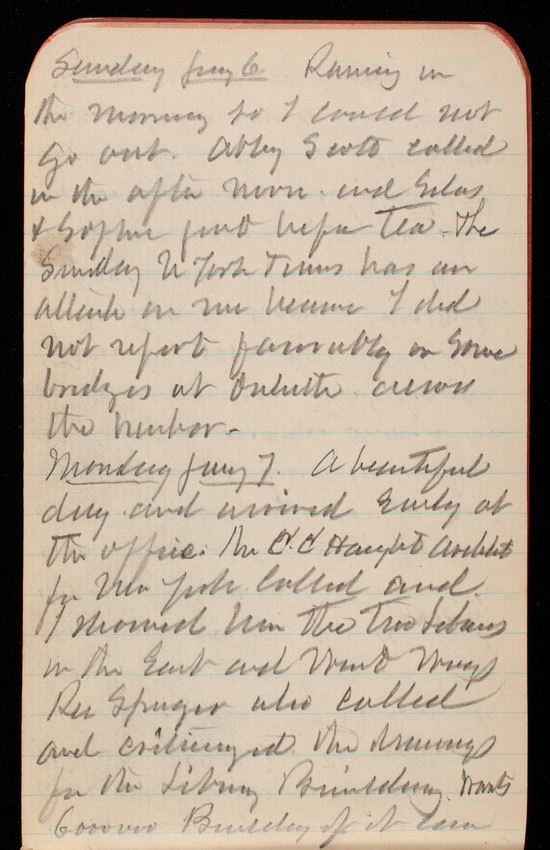 Sunday Jany 6. Raining in
the morning so I could not
go out. Abby Scott called
in the after noon. and Silas
& Sophie just before Tea. The
Sunday N York Times has an
attack on me because I did
not report favorably on some
bridges at Duluth across
the harbor.
Monday Jany 7. A beautiful
day and arrived Early at
the office. Mr C. C Haight Architect
for New York called and
I showed him the two
in the East and West Wings
also called
and criticized the drawings
for the Library Building. Wants
6000000 Building if it can